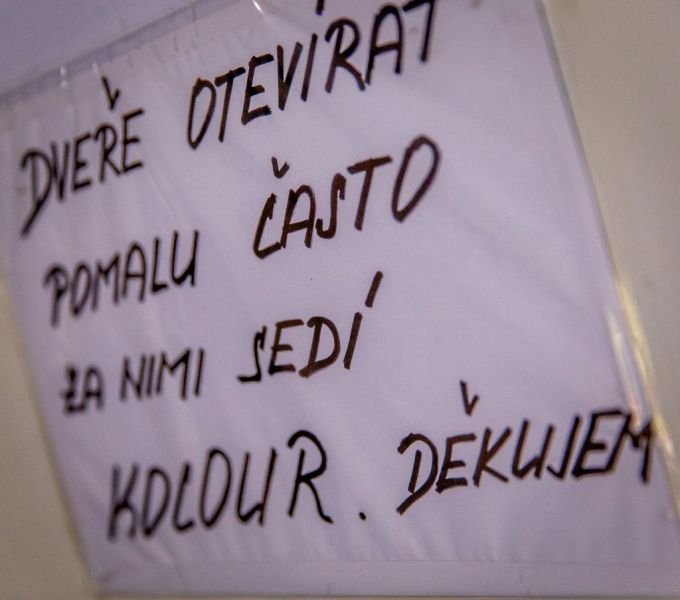 DVEŘE OTEVÍRAT
POMALU ČASTO
ZA NIMI SEDÍ
KOCOUR. DĚKUJEM